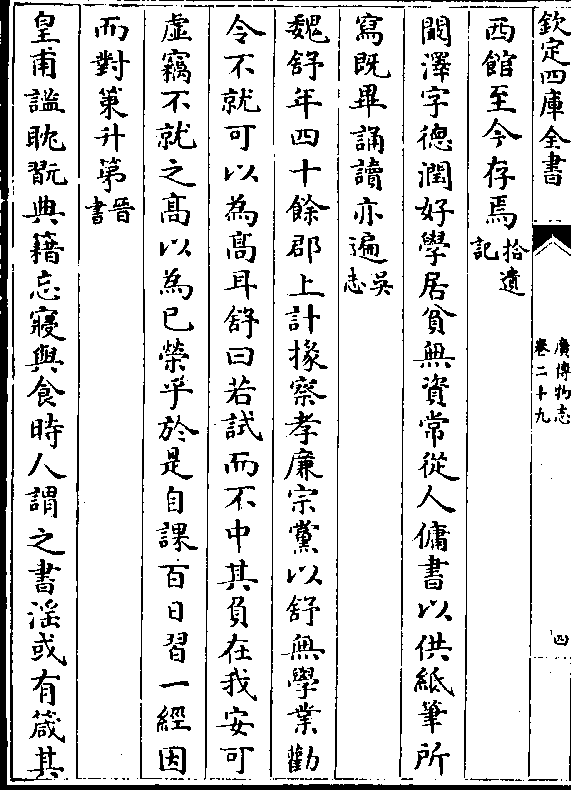 欽定四庫全書
廣博物志
卷二十九
四
西館至今存焉拾遺記
闞澤字德潤好學居貧無資常從人傭書以供紙筆所
寫既畢誦讀亦遍吳志
魏舒年四十餘郡上計掾察孝廉宗黨以舒無學業勸
令不就可以為髙耳舒曰若試而不中其負在我安可
虛竊不就之髙以為己榮乎於是自課百日習一經因
而對策升第晉書
皇甫謐耽翫典籍忘寢與食時人謂之書淫或有箴其